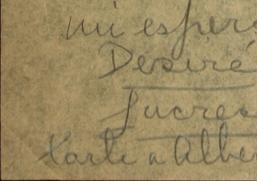 mi esper
Desiré
Lucres
Carta a Albe